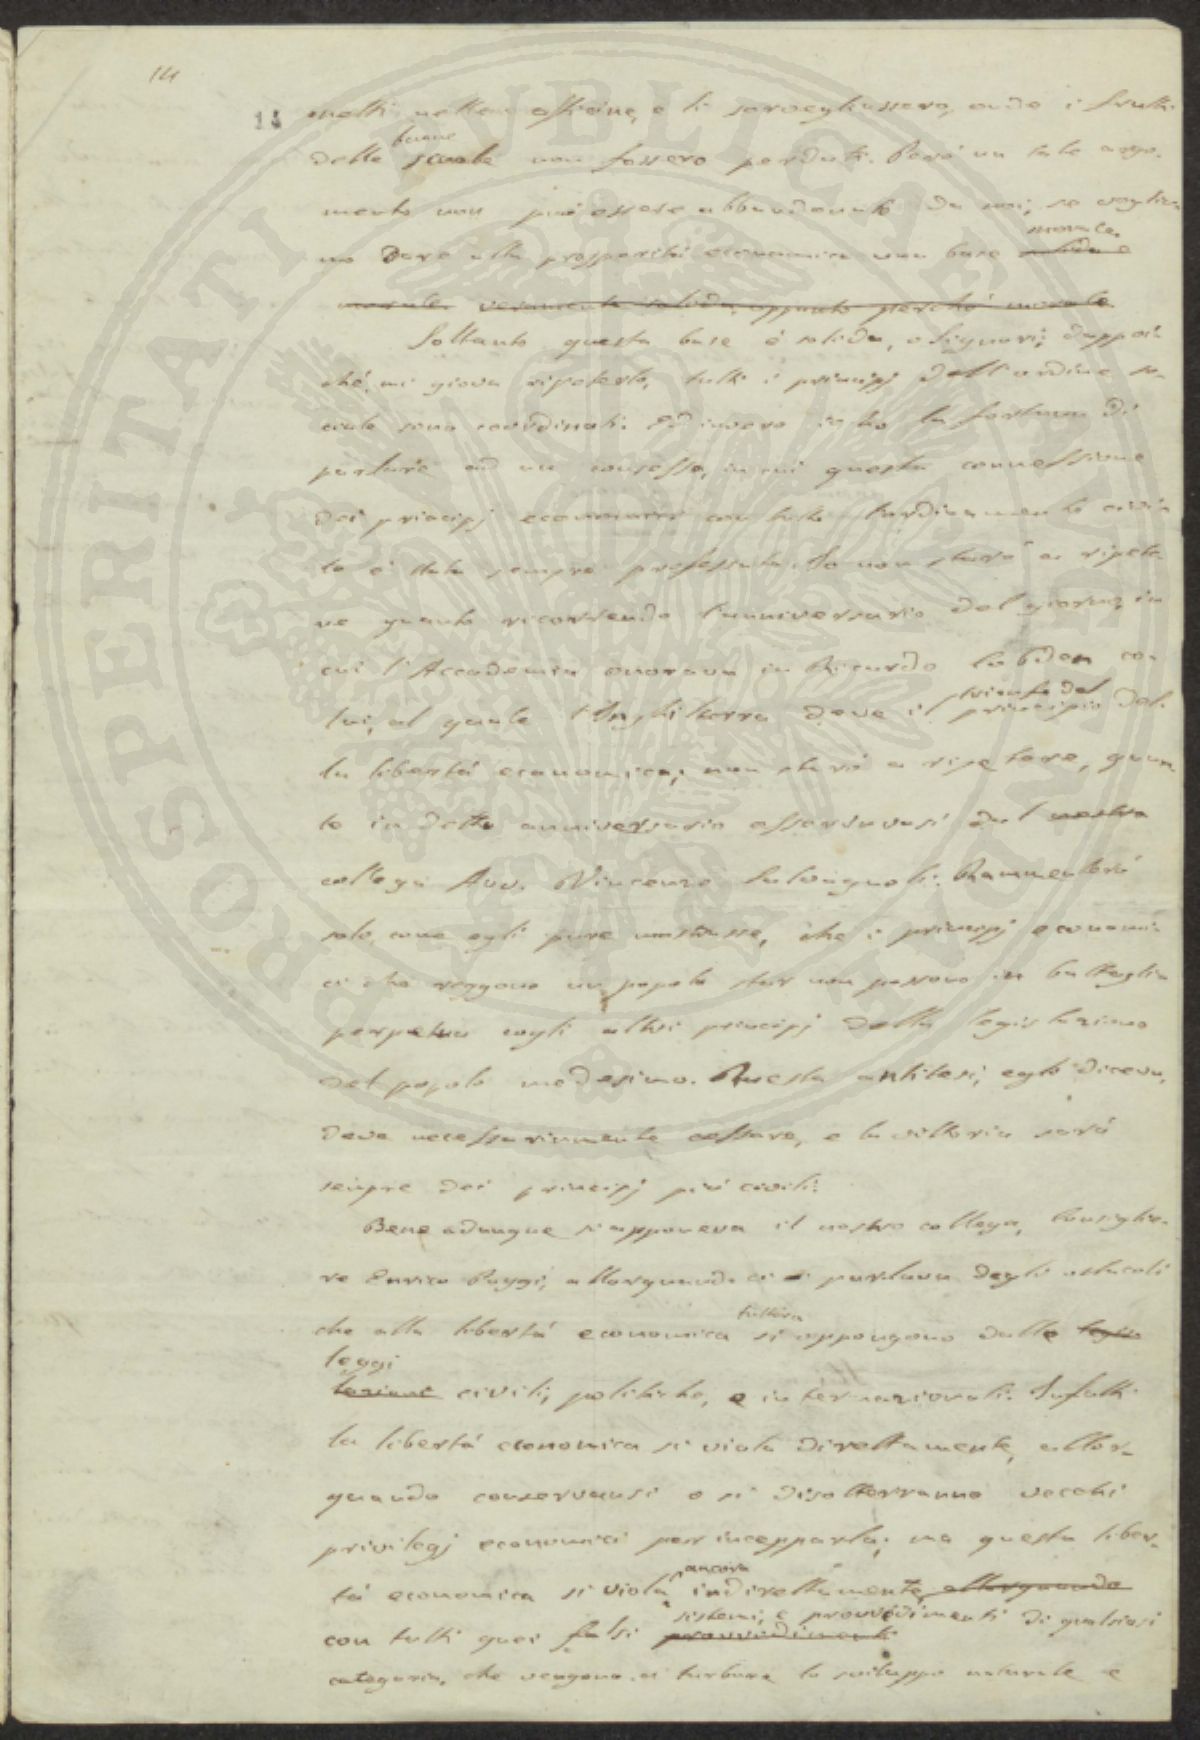 14
14
molti nelle officine, e li sorvegliassero, onde i frutti
buone
delle scuole non fossero perduti. Però un tale argo-
mento non può essere abbandonato da noi, se voglia-
morale.
mo dare alla prosperità economica una base solida e
morale. veramente solida, appunto perchè morale.
Soltanto questa base è solida, o Signori; dappoi-
chè, mi giova ripeterlo, tutti i principj dell'ordine so-
ciale sono coordinati. Ed invero io ho la fortuna di
parlare ad un consesso, in cui questa connessione
dei principj economici con tutto l'ordinamento civi-
le è stata sempre professata. Io non starò a ripete-
re quanto ricorrendo l'anniversario del giorno, in
cui l'Accademia onorava in Ricardo Cobden co-
trionfo del
lui, al quale l'Inghilterra deve il principio del-
la libertà economica; non starò a ripetere, quan-
to in detto anniversario osservavasi dal nostro
collega Avv. Vincenzo Salvagnoli. Rammenterò
solo, come egli pure mostrasse, che i principj economi-
ci che reggono un popolo star non possono in battaglia
perpetua cogli altri principj della legislazione
del popolo medesimo. Questa antitesi, egli diceva,
deve necessariamente cessare, e la vittoria sarà
sempre dei principj più civili.
Bene adunque si apponeva il nostro collega, Consiglie-
re Enrico Poggi, allorquando ci parlava degli ostacoli
tuttora
che alla libertà economica si oppongono dalle legis-
leggi
lazioni civili, politiche, e internazionali. Infatti
la libertà economica si viola direttamente, allor-
quando conservansi o si disotterranno vecchi
privilegj economici per incepparla; ma questa liber-
ancora
tà economica si viola indirettamente, allorquando
sistemi, e provvedimenti di qualsiasi
con tutti quei falsi provvedimenti
categoria, che vengono a turbare lo sviluppo naturale e